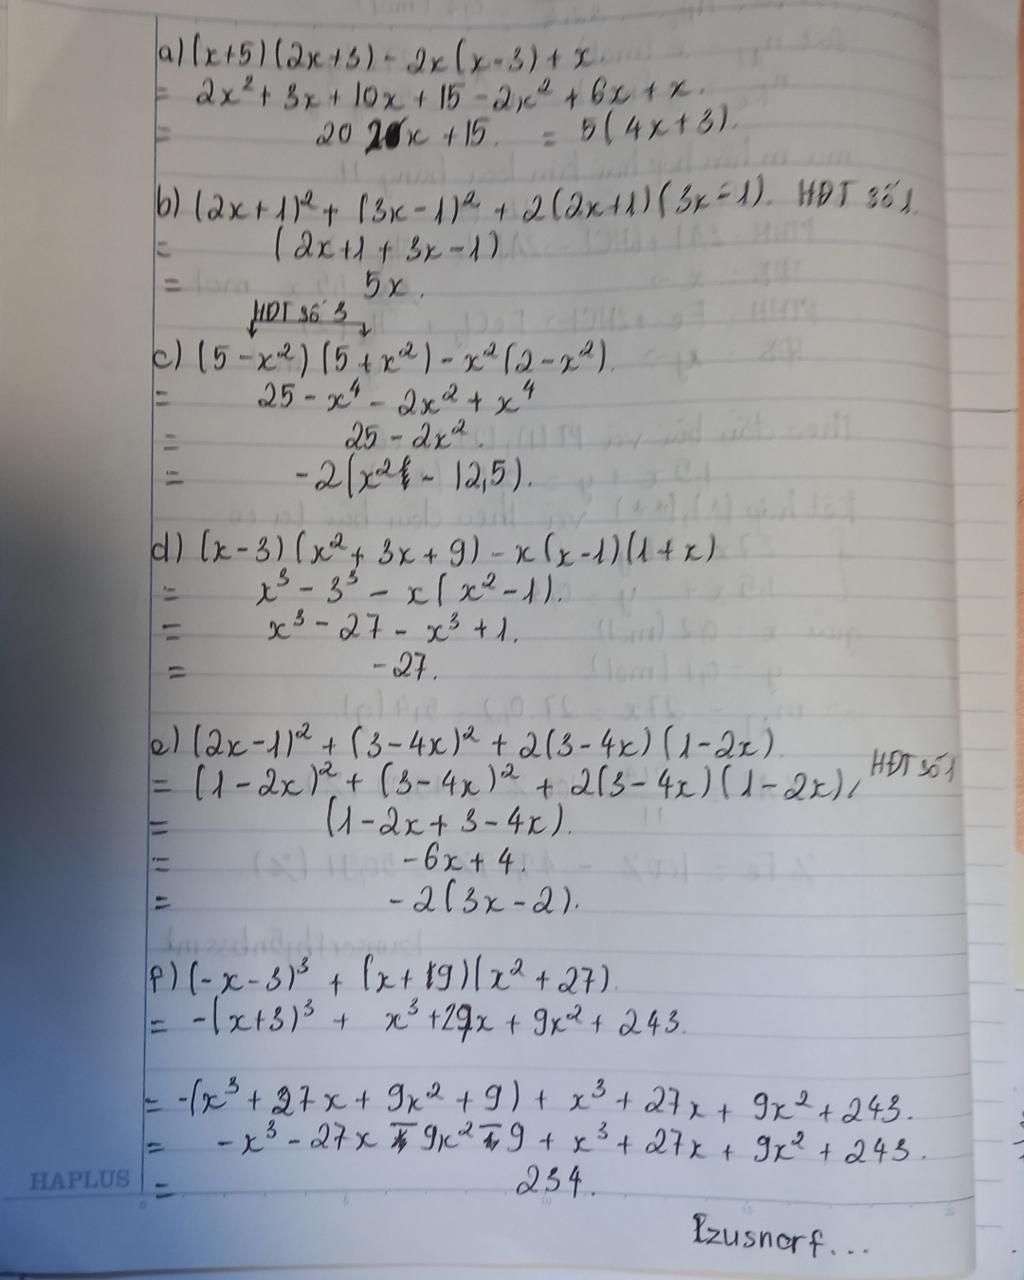 a) (x+5)(2x+3) - 2x(x-3) + x
= 2x² + 3x + 10x + 15 - 2x² + 6x + x.
= 20x + 15. = 5(4x+3).
b) (2x+1)² + (3x-1)² + 2(2x+1)(3x-1). HĐT số 1.
= (2x+1 + 3x-1)
= 5x.
HĐT số 3
c) (5-x²)(5+x²) - x²(2-x²).
= 25 - x⁴ - 2x² + x⁴
= 25 - 2x².
= -2(x² - 12,5).
d) (x-3)(x² + 3x + 9) - x(x-1)(1+x)
= x³ - 3³ - x(x²-1).
= x³ - 27 - x³ + 1.
= -27.
e) (2x-1)² + (3-4x)² + 2(3-4x)(1-2x)
= (1-2x)² + (3-4x)² + 2(3-4x)(1-2x), HĐT số 1
= (1-2x + 3-4x).
= -6x + 4.
= -2(3x-2).
f) (-x-3)³ + (x+9)(x² + 27).
= -(x+3)³ + x³ + 27x + 9x² + 243.
= -(x³ + 27x + 9x² + 9) + x³ + 27x + 9x² + 243.
= -x³ - 27x - 9x² - 9 + x³ + 27x + 9x² + 243.
HAPLUS
= 234.
Izusnarf...